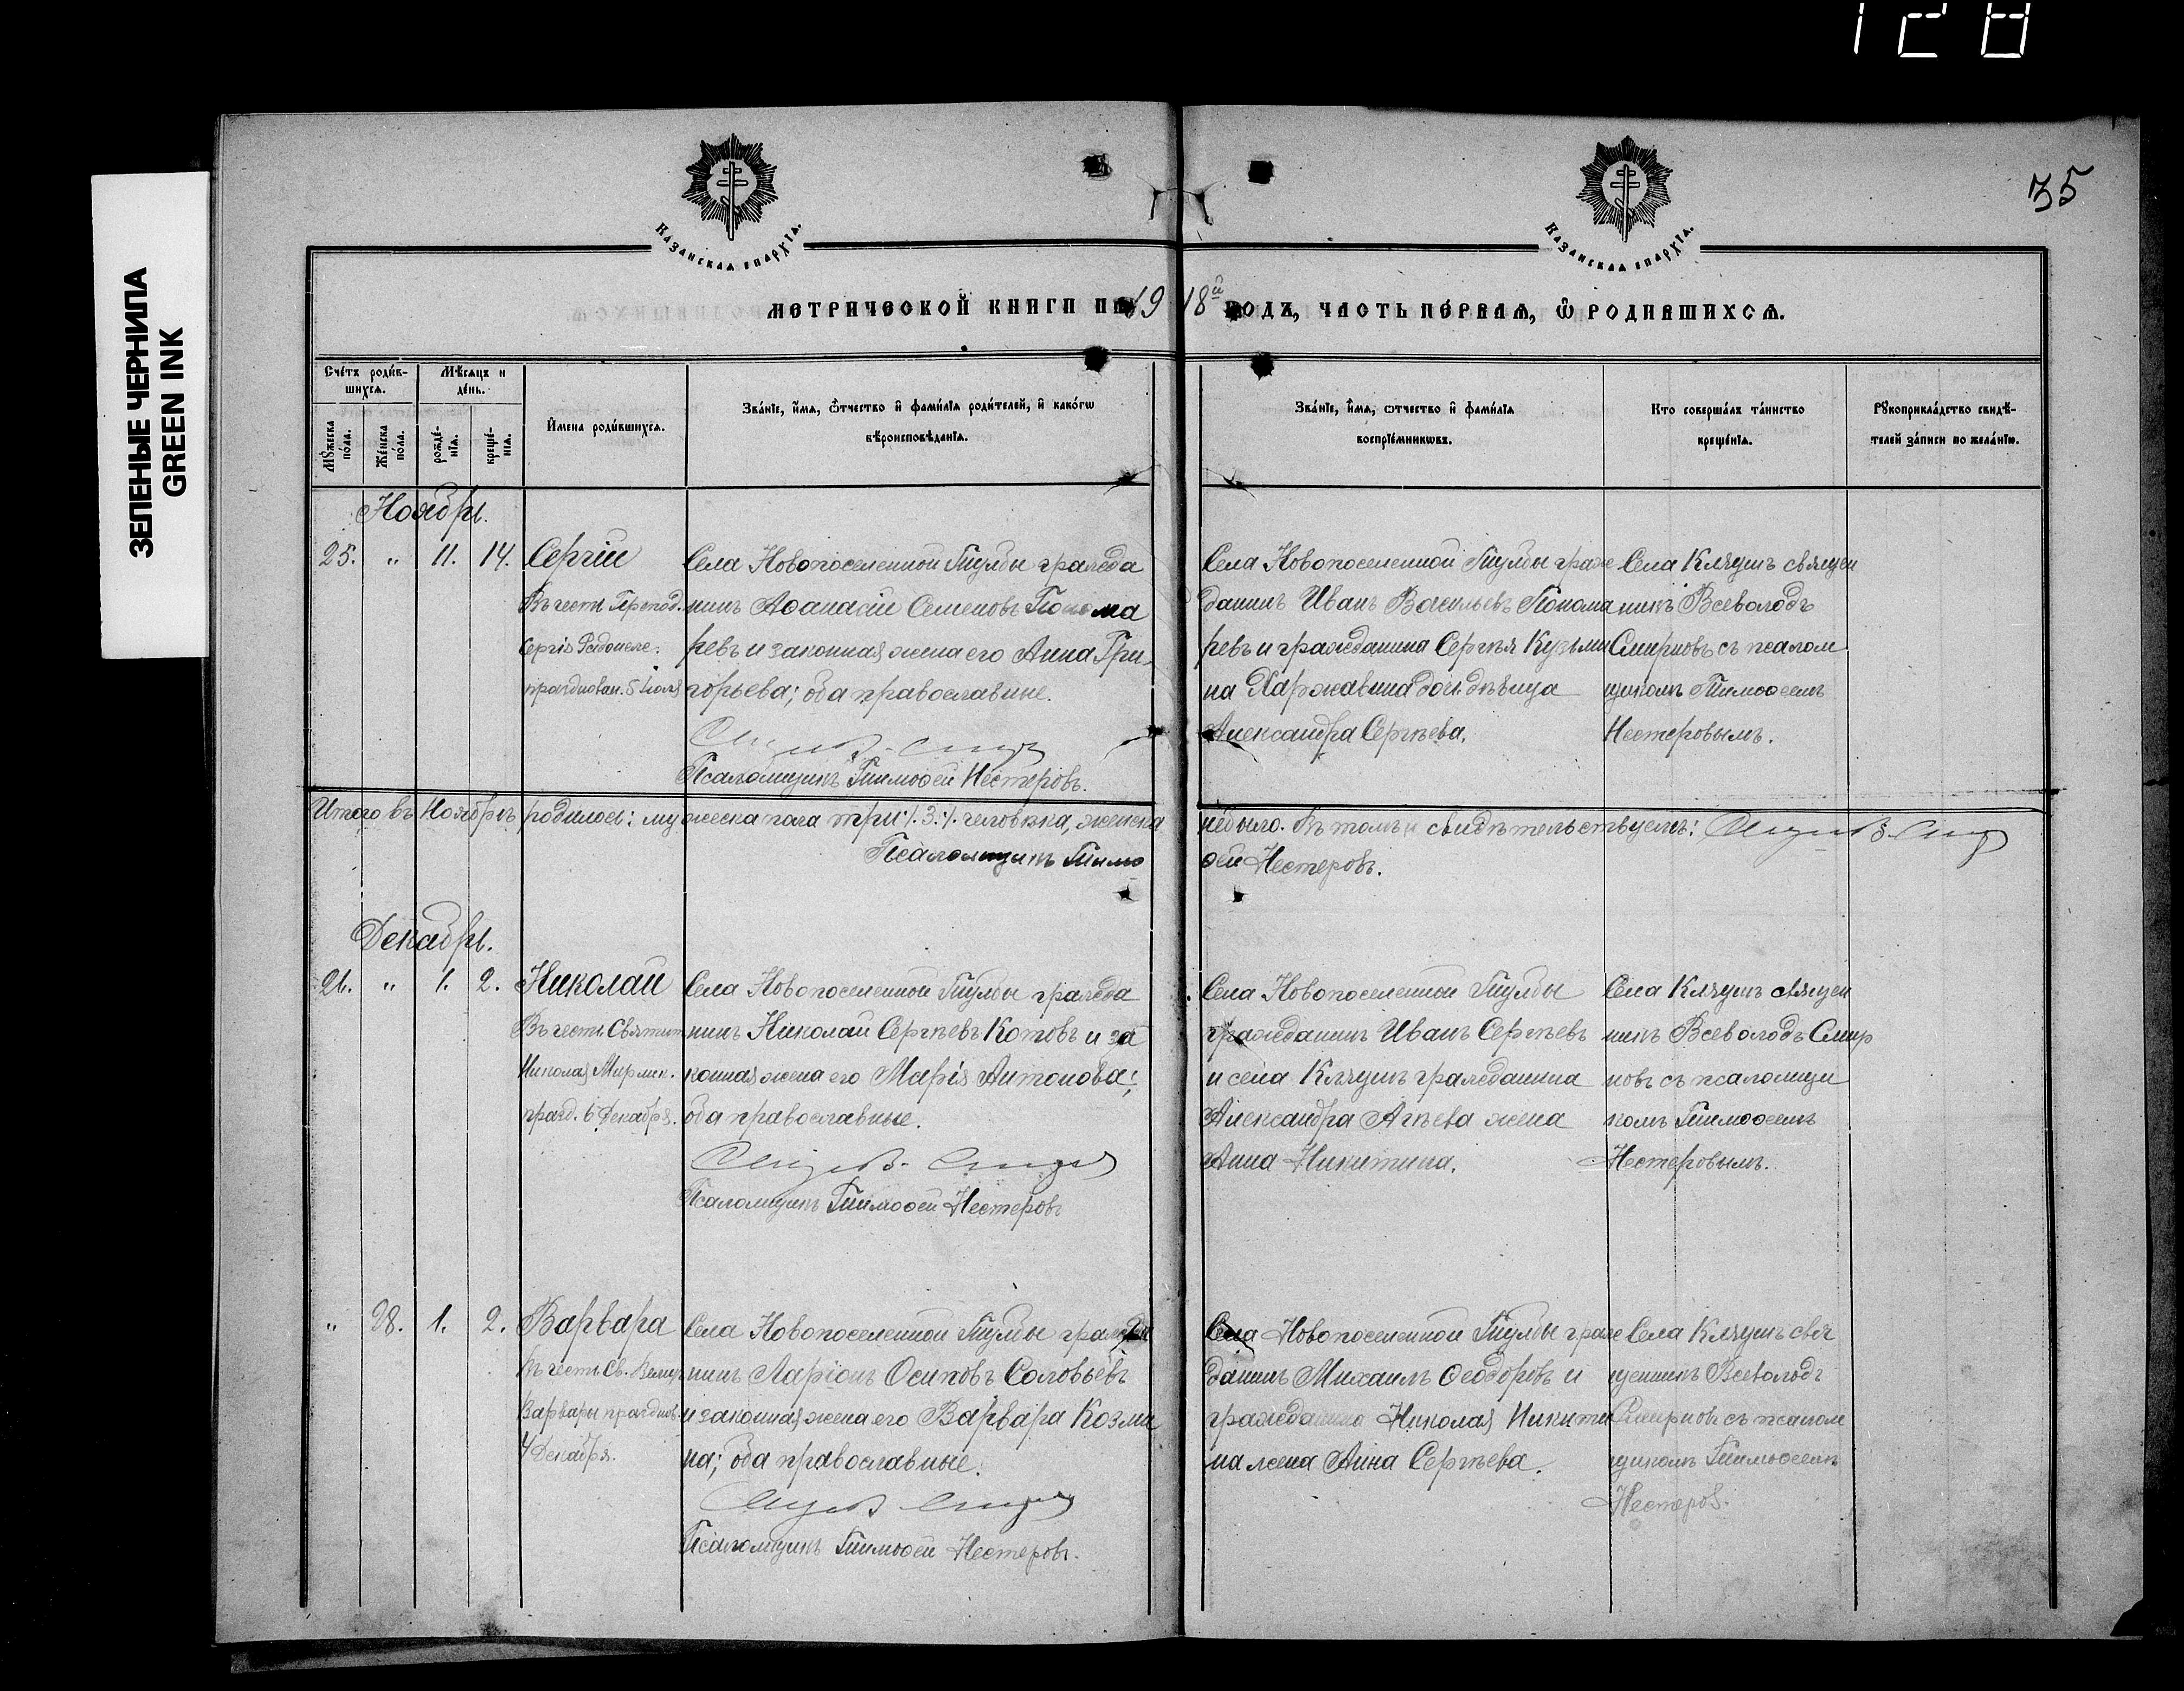 128
ЗЕЛЕНЫЕ ЧЕРНИЛА
GREEN INK
35
Казанская епархїя.
Казанская епархїя.
Метрической книги на 1918й годъ, часть первая, ѡ родившихсѧ.
Счетъ родив-
шихсѧ.
Мѣсѧцъ и
день.
Мꙋжеска
пола.
Женска
пола.
рожде-
нїѧ.
креще-
нїѧ.
Имена родившихсѧ.
Званїе, имѧ, ѿчество и фамилїѧ родителей, и какогѡ
вѣроисповѣданїѧ.
Званїе, имѧ, ѿчество и фамилїѧ
воспрїемникѡвъ.
Кто совершалъ таинство
крещенїѧ.
Рꙋкоприкладство свидѣ-
телей записи по желанїю.
Ноябрь.
25. " 11. 14. Сергій
Въ честь Препод.
Сергія Радонеж.
празднован. 5 Іюля
Села Новопоселенной Тиулбы гражда
нинъ Аѳанасій Семеновъ Понома
ревъ и законная жена его Анна Гри-
горьева; оба православные.
Псаломщикъ Тимоѳей Нестеровъ.
Села Новопоселенной Тиулбы граж
данинъ Иванъ Васильевъ Понома
ревъ и гражданина Сергѣя Кузьми
на Харжавина дочь дѣвица
Александра Сергѣева.
Села Клячушъ священ
никъ Всеволодъ
Смирновъ съ псалом
щикомъ Тимоѳеемъ
Нестеровымъ.
Итого въ Ноябрѣ родилось: мужеска пола три ·/. 3 ·/. человѣка, женска не было. Въ томъ и свидѣтельствуемъ:
Псаломщикъ Тимоѳей Нестеровъ.
Декабрь.
26. " 1. 2. Николай
Въ честь Святит.
Николая Мирлик.
празд. 6 Декабря.
Села Новопоселенной Тиулбы гражда
нинъ Николай Сергѣевъ Котовъ и за
конная жена его Марія Антонова;
оба православные.
Псаломщикъ Тимоѳей Нестеровъ
Села Новопоселенной Тиулбы
гражданинъ Иванъ Сергѣевъ
и села Клячушъ гражданина
Александра Агѣева жена
Анна Никитина.
Села Клячушъ священ
никъ Всеволодъ Смир
новъ съ псаломщи
комъ Тимоѳеемъ
Нестеровымъ.
" 28. 1. 2. Варвара
Въ честь Св. Велик.
Варвары празднов.
4 Декабря.
Села Новопоселенной Тиулбы гражда
нинъ Ларіонъ Осиповъ Соловьевъ
и законная жена его Варвара Козми
на; оба православные.
Псаломщикъ Тимоѳей Нестеровъ.
Села Новопоселенной Тиулбы граж
данинъ Михаилъ Ѳеодоровъ и
гражданина Николая Никити
на жена Анна Сергѣева.
Села Клячушъ свя
щенникъ Всеволодъ
Смирновъ съ псалом
щикомъ Тимоѳеемъ
Нестеров.